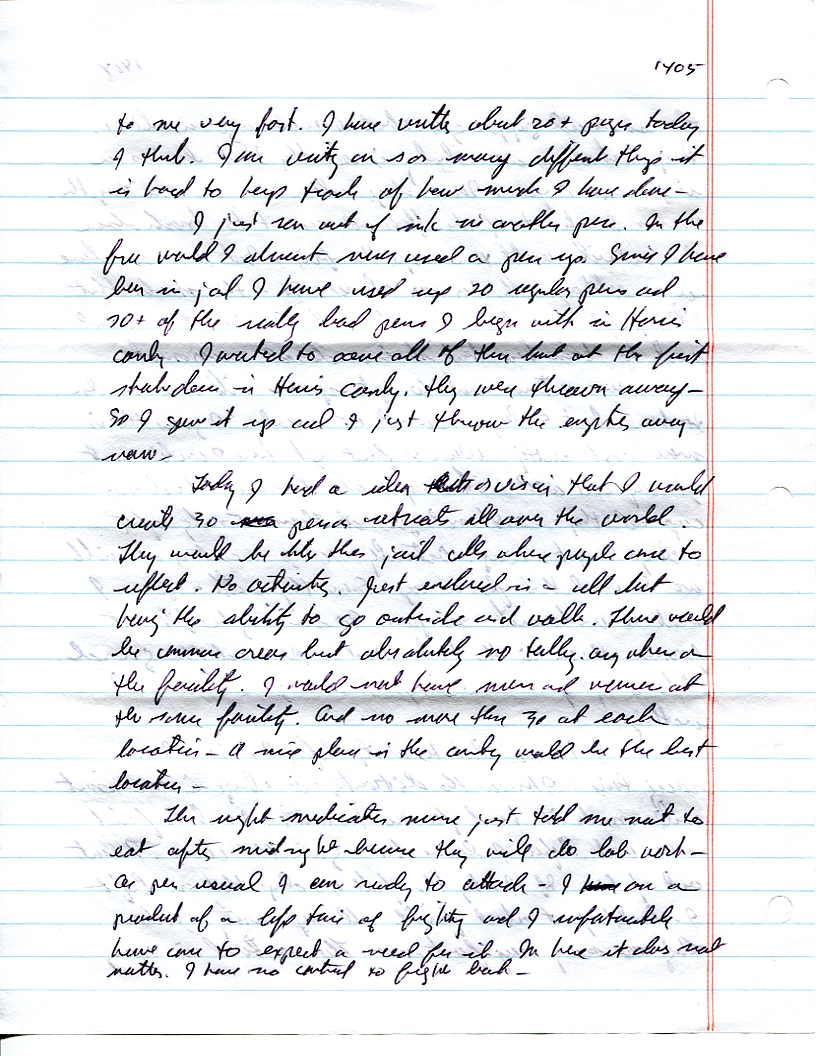 1405
to me very fast. I have written about 20+ pages today
I think. I am writing on so many different things it
is hard to keep track of how much I have done –
I just ran out of ink in another pen. In the
free world I almost never used a pen up. Since I have
been in jail I have used up 20 regular pens and
20+ of the really bad pens I began with in Harris
county. I wanted to save all of them but at the first
shakedown in Harris county. they were thrown away –
So I gave it up and I just throw the empties away
now –
Today I had a idea or vision that I would
create 30 person retreats all over the world.
They would be like these jail cells where people come to
reflect. No activity. Just enclosed in a cell but
having the ability to go outside and walk. There would
be common areas but absolutely no talking anywhere on
the facility. I would not have men and women at
the same facility. And no more than 30 at each
location – A nice place in the country would be the best
location –
The night medication nurse just told me not to
eat after midnight because they will do lab work –
As per usual I am ready to attack – I am a
product of a life time of fighting and I unfortunately
have come to expect a need for it. In here it does not
matter. I have no control to fight back –